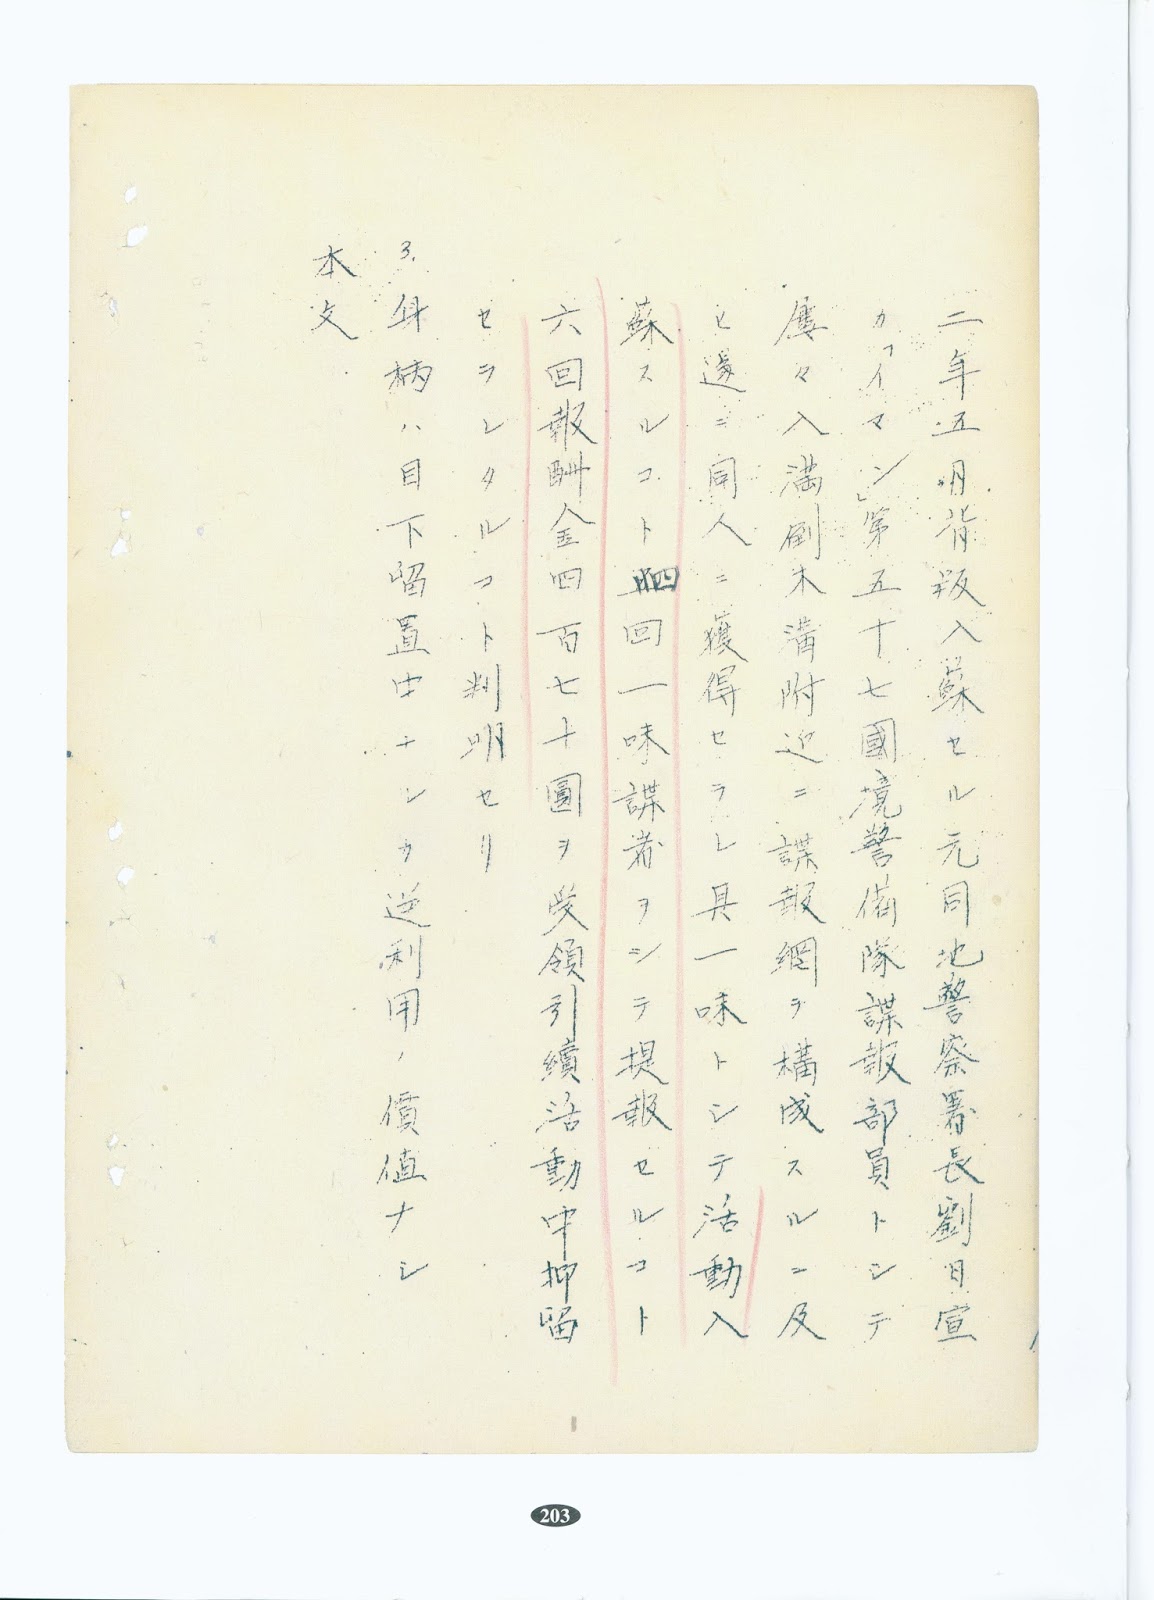 二年五月背叛入蘇セル元同地警察署長劉日宣
カ「イマン」第五十七國境警備隊諜報部員トシテ
屢々入満倒木溝附近ニ諜報網ヲ構成スルニ及
ヒ遂ニ同人ニ獲得セラレ具一味トシテ活動入
蘇スルコト四回一味諜者ヲシテ提報セルコト
六回報酬金四百七十圓ヲ受領引續活動中抑留
セラレタルコト判明セリ
3.身柄ハ目下留置中ナレカ逆利用ノ價値ナシ
本文
203